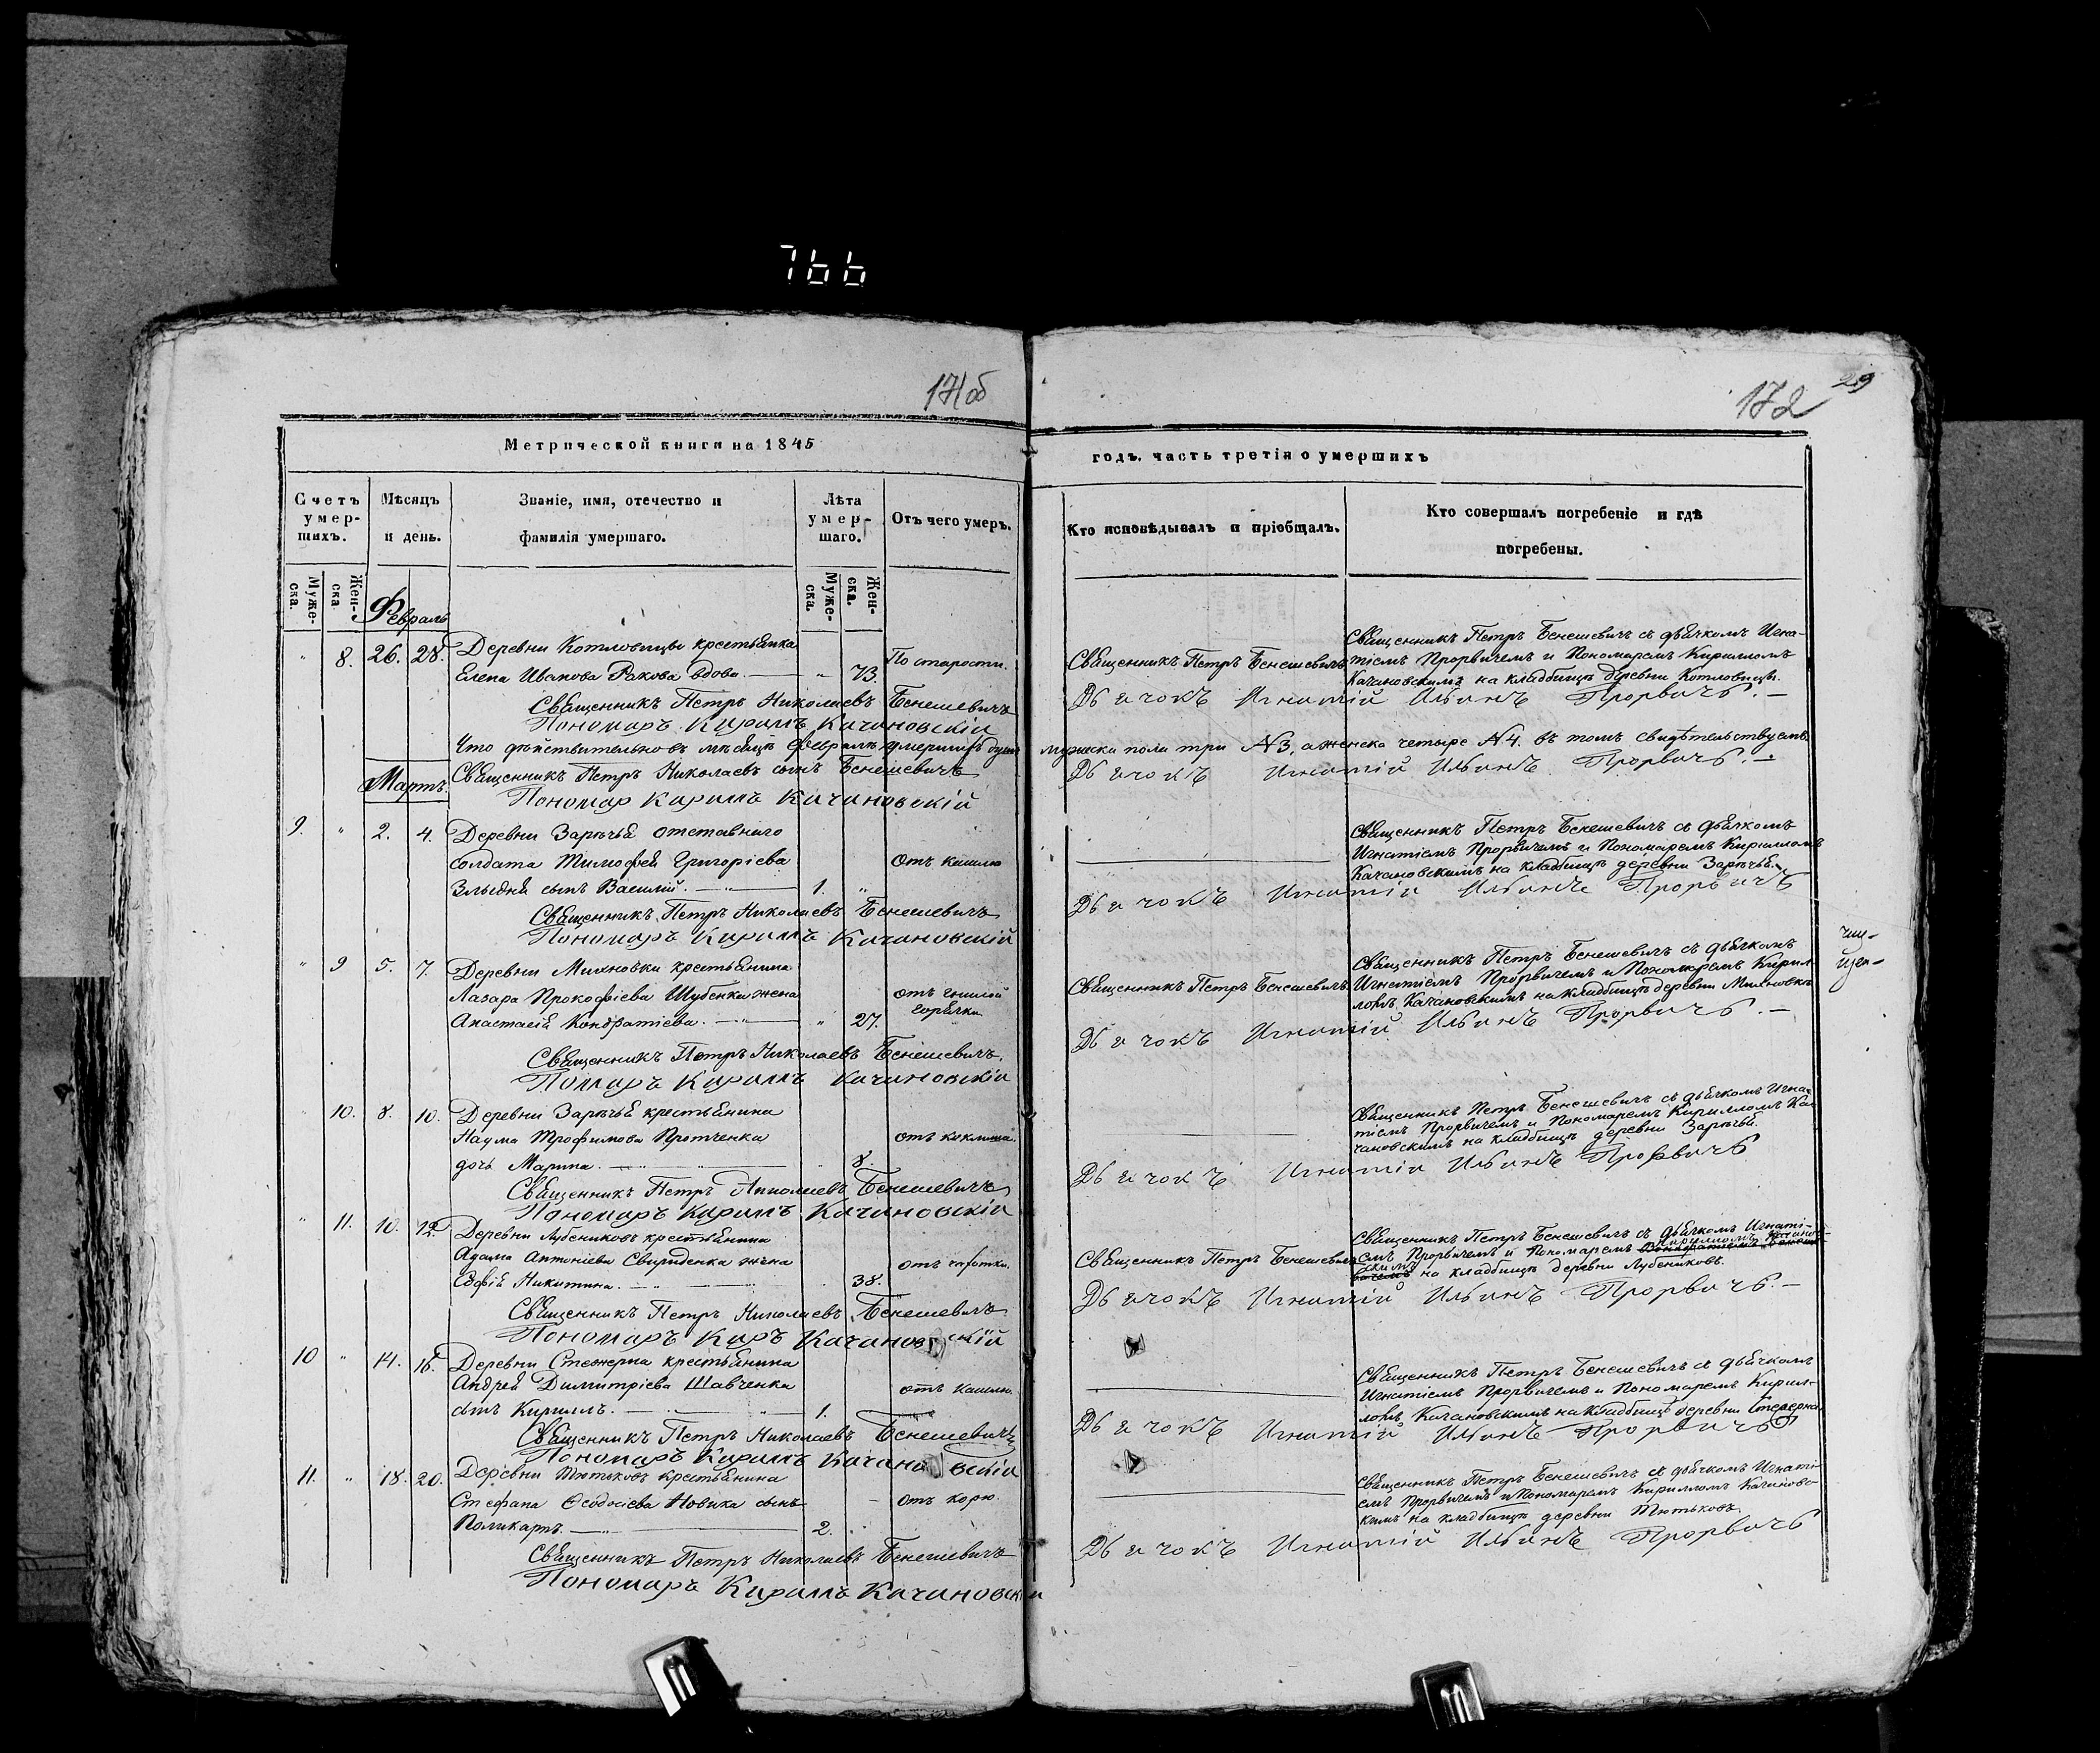 766
171 об
172
29
Метрической книги на 1845
годъ, часть третія о умершихъ
Счетъ умер-шихъ.
Мѣсяцъ и день.
Званіе, имя, отечество и фамилія умершаго.
Лѣта умер-шаго.
Отъ чего умеръ.
Кто исповѣдывалъ и пріобщалъ.
Кто совершалъ погребеніе и гдѣ погребены.
Муже-ска.
Жен-ска
Муже-ска.
Жен-ска.
Февраль
" 8. 26. 28. Деревни Котловицы крестьянка
Елена Иванова Ракова вдова. " 73. По старости.
Священникъ Петръ Бенешевичъ
Священникъ Петръ Бенешевичъ съ дьячкомъ Игна-
тіемъ Прорвичемъ и Пономаремъ Кирилломъ
Качановскимъ на кладбищѣ деревни Котловицы.
Священникъ Петръ Николаевъ Бенешевичъ
Дьячокъ Игнатій Ильинъ Прорвичъ.
Пономаръ Кирилъ Качановскій
Что дѣйствительно въ мѣсяцѣ Февралѣ умершихъ душъ мужска пола три №3, а женска четыре №4. въ томъ свидѣтельствуемъ
Мартъ.
Священникъ Петръ Николаевъ сынъ Бенешевичъ
Дьячокъ Игнатій Ильинъ Прорвичъ.
Пономар Кирилъ Качановскій
9. " 2. 4. Деревни Зарѣчья отставнаго
солдата Тимофея Григоріева
Злыдня сынъ Василій. 1. " Отъ кашлю
Священникъ Петръ Бенешевичъ съ дьячкомъ
Игнатіемъ Прорвичемъ и Пономаремъ Кирилломъ
Качановскимъ на кладбищѣ деревни Зарѣчья.
Священникъ Петръ Николаевъ Бенешевичъ
Дьячокъ Игнатій Ильинъ Прорвичъ
Пономаръ Кирилъ Качановскій
" 9 5. 7. Деревни Михновки крестьянина
Лазара Прокофіева Шубенка жена
Анастасія Кондратіева. " 27. отъ гнилой горячки
Священникъ Петръ Бенешевичъ
Священникъ Петръ Бенешевичъ съ дьячкомъ
Игнатіемъ Прорвичемъ и Пономаремъ Кирил-
ломъ Качановскимъ на кладбищѣ деревни Михновки
Священникъ Петръ Николаевъ Бенешевичъ.
Дьячокъ Игнатій Ильинъ Прорвичъ.
Помаръ Кирилъ Качановскій
" 10. 8. 10. Деревни Зарѣчья крестьянина
Наума Трофимова Протченка
дочь Марина. 8. отъ коклюша.
Священникъ Петръ Бенешевичъ съ дьячкомъ Игна-
тіемъ Прорвичемъ и Пономаремъ Кирилломъ Ка-
чановскимъ на кладбищѣ деревни Зарѣчья.
Священникъ Петръ Николаевъ Бенешевичъ
Дьячокъ Игнатій Ильинъ Прорвичъ
Пономаръ Кирилъ Качановскій
" 11. 10. 12. Деревни Лубениковъ крестьянина
Адама Антоніева Свириденка жена
Евфія Никитина. 38. отъ чахотки.
Священникъ Петръ Бенешевичъ
Священникъ Петръ Бенешевичъ съ дьячкомъ Игнаті-
емъ Прорвичемъ и Пономаремъ Кирилломъ Качанов-
скимъ на кладбищѣ деревни Лубениковъ.
Священникъ Петръ Николаевъ Бенешевичъ
Дьячокъ Игнатій Ильинъ Прорвичъ.
Пономаръ Киръ Качановскій
10 " 14. 16. Деревни крестьянина
Андрея Димитріева Шавченка
сынъ Кириллъ. 1. отъ кашлю.
Священникъ Петръ Бенешевичъ съ дьячкомъ
Игнатіемъ Прорвичемъ и Пономаремъ Кирил-
ломъ Качановскимъ на кладбищѣ деревни
Священникъ Петръ Николаевъ Бенешевичъ
Дьячокъ Игнатій Ильинъ Прорвичъ
Пономаръ Кирилъ Качановскій
11. " 18. 20. Деревни Тютьковъ крестьянина
Стефана Ѳеодосіева Новика сынъ
Поликарпъ. 2. отъ корю.
Священникъ Петръ Бенешевичъ съ дьячкомъ Игнаті-
емъ Прорвичемъ и Пономаремъ Кирилломъ Качановс-
кимъ на кладбищѣ деревни Тютьковъ.
Священникъ Петръ Николаевъ Бенешевичъ
Дьячокъ Игнатій Ильинъ Прорвичъ
Пономаръ Кирилъ Качановскій